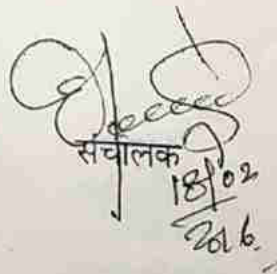 संचालक
18/02
2016.